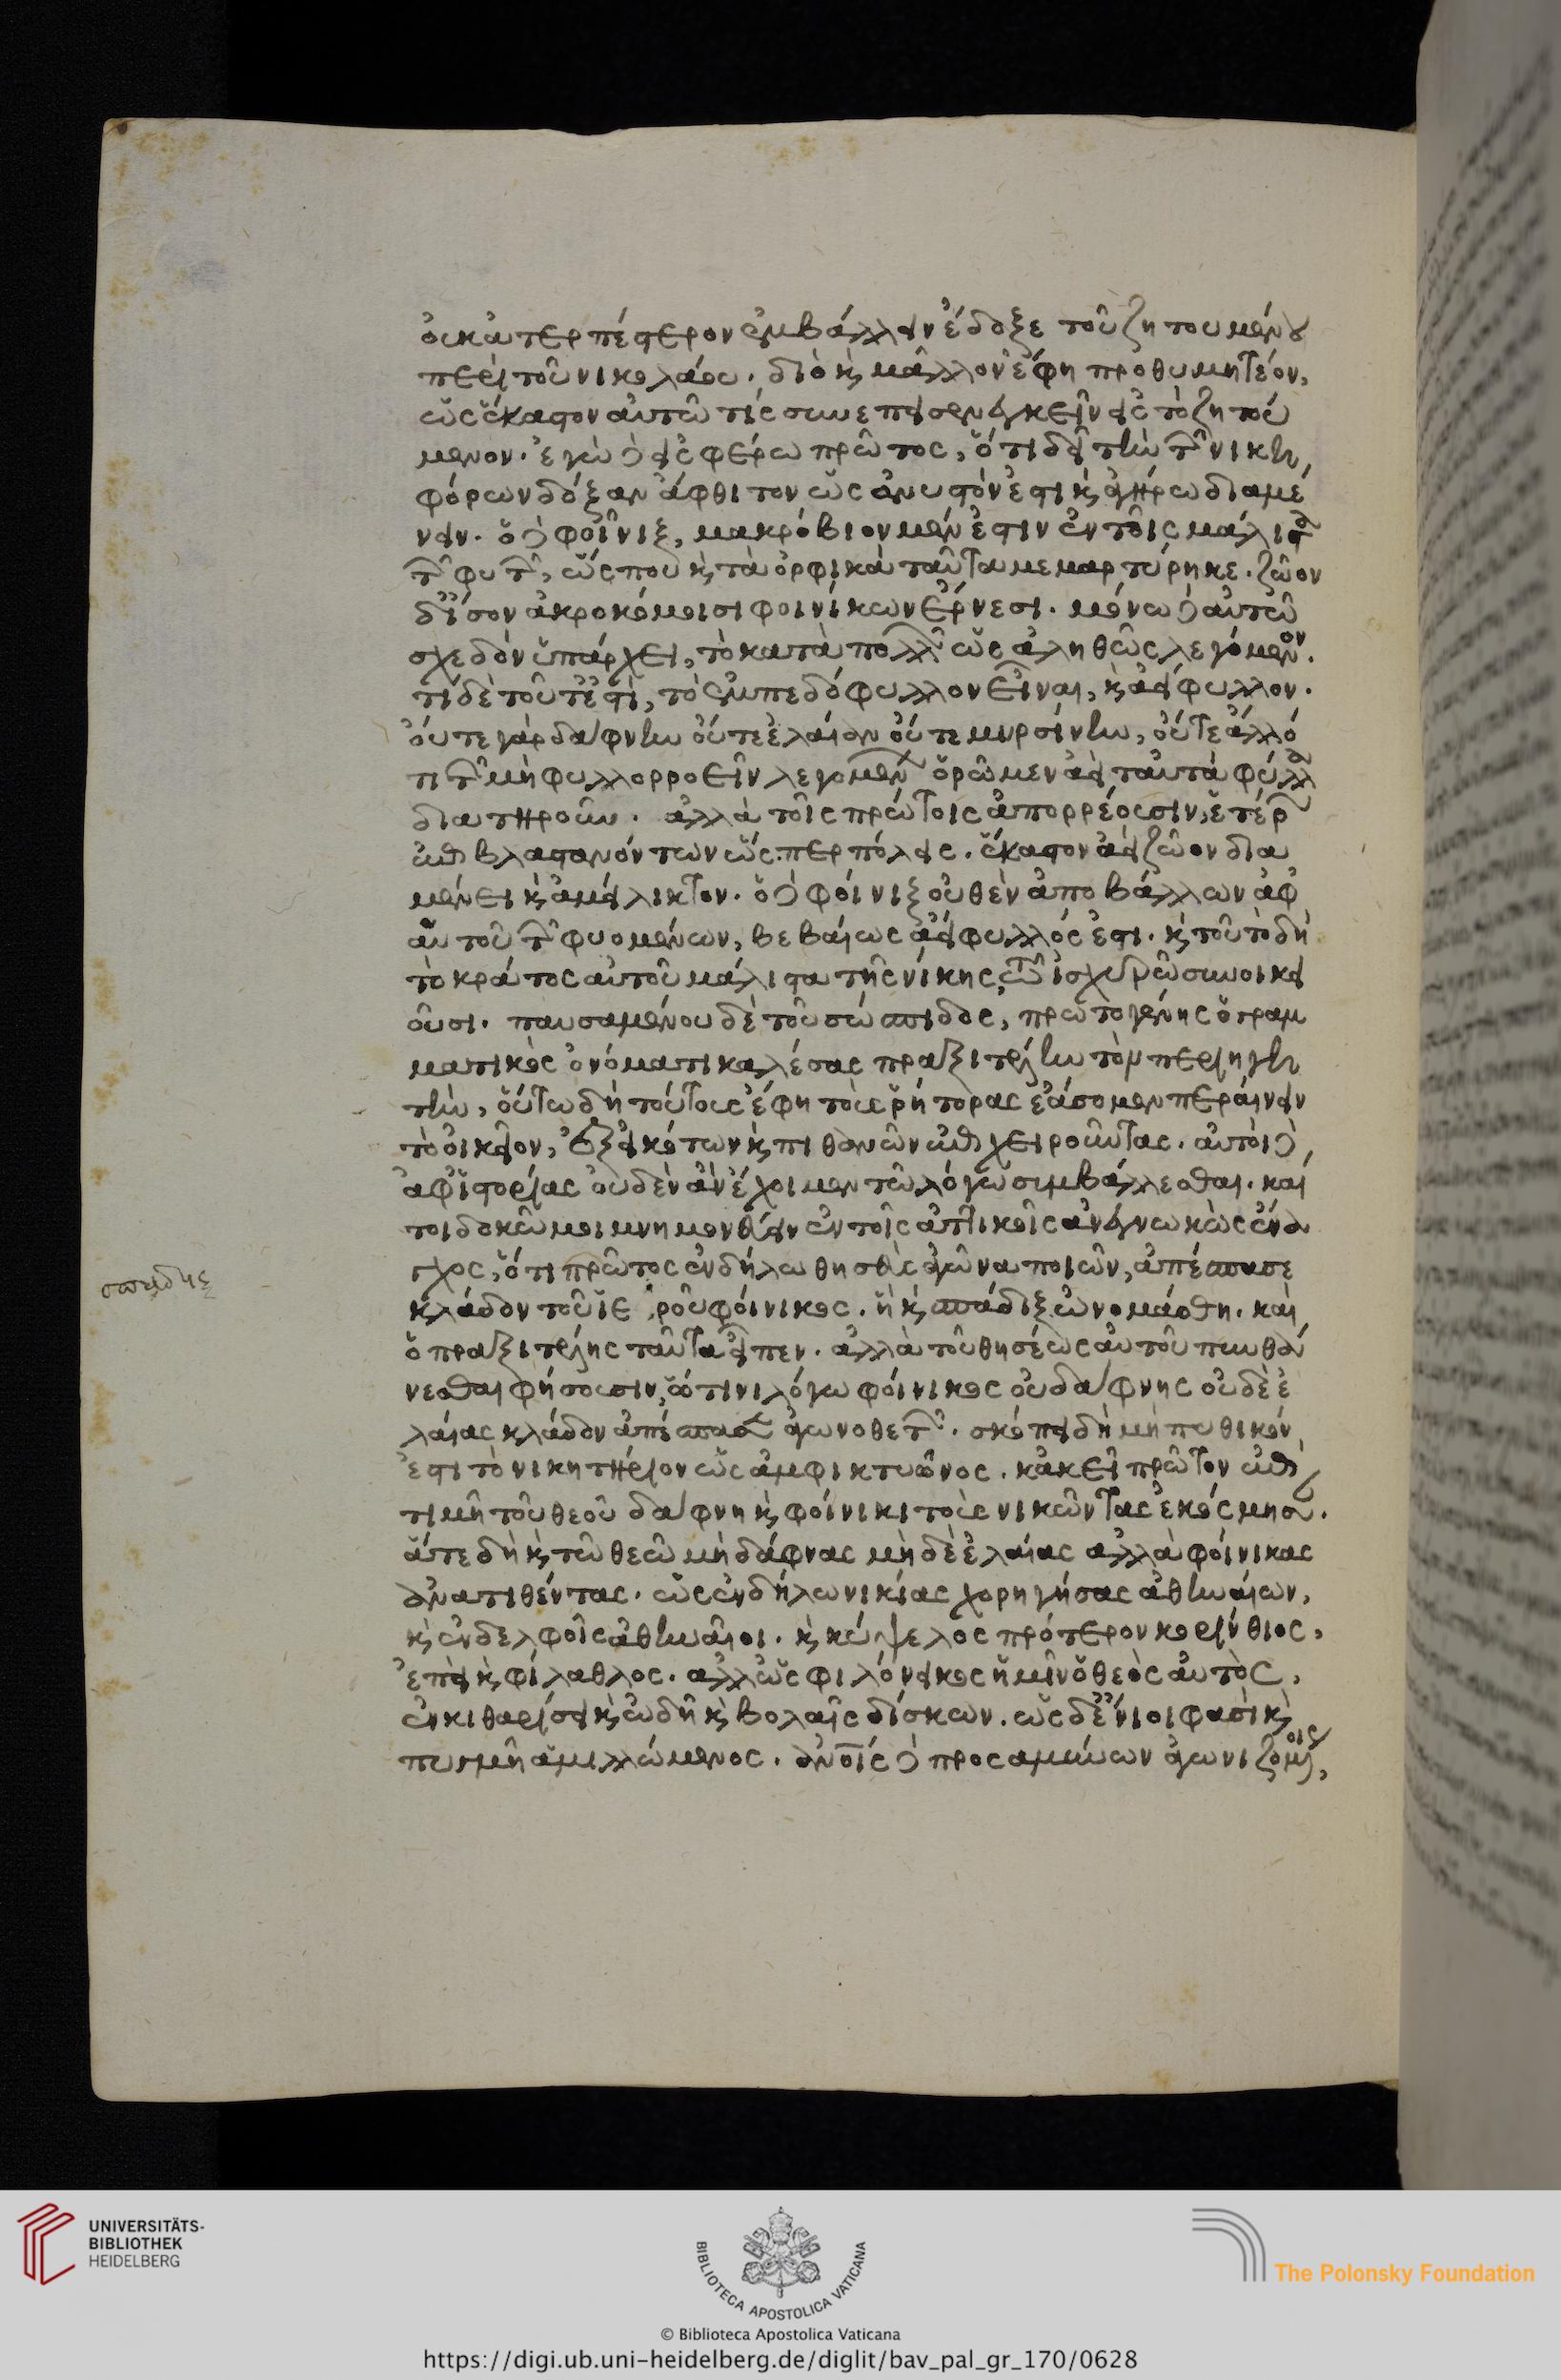 οὐκ ἀτερπέστερον ἐμβάλλειν ἔδοξε τοῦ ζητουμένου
περὶ τοῦ νικολάου. διὸ καὶ μᾶλλον ἔφη προθυμητέον,
ὡς ἕκαστον αὐτῶ τίς συνεπεισενεγκεῖν εἰς τὸ ζητού
μενον. ἐγὼ δὲ εἰσφέρω πρῶτος, ὅτι δεῖ τὴν τῶν νικη
φόρων δόξαν ἄφθιτον ὡς ἀνυστόν ἐστι καὶ ἀγήρω διαμέ
νειν. ὁ δὲ φοῖνιξ, μακρόβιον μέν ἐστιν ἐν τοῖς μάλιστα
τῶν φυτῶν, ὥς που καὶ τὰ ὀρφικὰ ταῦτα μεμαρτύρηκε. ζῶον
δ' ἴσον ἀκροκόμοισι φοινίκων ἔρνεσι. μόνω δὲ αὐτῶ
σχεδὸν ὑπάρχει, τὸ κατὰ πολλῶν ὡς ἀληθῶς λεγόμενον.
τί δὲ τοῦτ' ἐστὶ, τὸ ἐμπεδόφυλλον εἶναι, καὶ ἀείφυλλον.
οὔτε γὰρ δάφνην οὔτε ἐλαίαν οὔτε μυρσίνην, οὔτε ἄλλό
τι τῶν μὴ φυλλορροεῖν λεγομένων ὁρῶμεν ἀεὶ ταὐτὰ φύλλα
διατηροῦν. ἀλλὰ τοῖς πρώτοις ἀπορρέουσιν, ἑτέρων
ἐπιβλαστανόντων ὥς περ πόλεις. ἕκαστον ἀεὶ ζῶον δια
μένει καὶ ἀμείλικτον. ὁ δὲ φοίνιξ οὐθὲν ἀποβάλλων ἀφ'
αὑτοῦ τῶν φυομένων, βεβαίως ἀείφυλλός ἐστι. καὶ τοῦτο δὴ
τὸ κράτος αὐτοῦ μάλιστα τῆς νίκης τῶ ἰσχυρῶ συνοικει
οῦσι. παυσαμένου δὲ τοῦ σώσπιδος, πρωτογένης ὁ γραμ
ματικὸς ὀνόματι καλέσας πραξιτέλην τὸν περιηγη
τὴν, οὕτω δὴ τούτους ἔφη τοὺς ῥήτορας ἐάσομεν περαίνειν
τὸ οἰκεῖον, ἐξ εἰκότων καὶ πιθανῶν ἐπιχειροῦντας. αὐτοὶ δὲ
ἀφ' ἱστορίας οὐδὲν ἂν ἔχοιμεν τῶ λόγω συμβάλλεσθαι. καί
τοι δοκῶ μοι μνημονεύειν ἐν τοῖς ἀττικοῖς ἀνεγνωκὼς ἔνα
γχος, ὅτι πρῶτος ἐν δήλω θησεὺς ἀγῶνα ποιῶν, ἀπέσπασε
κλάδον τοῦ ἱε ροῦ φοίνικος. ἧ καὶ σπάδιξ ὠνομάσθη. καὶ
ὁ πραξιτέλης ταῦτα εἶπεν. ἀλλὰ τοῦ θησέως αὐτοῦ πυνθά
νεσθαι φήσουσιν, ὧτινι λόγω φοίνικος οὐ δάφνης οὐδὲ ἐ
λαίας κλάδον ἀπέσπασεν ἀγωνοθετῶν. σκόπει δὴ μὴ πυθικόν
ἐστι τὸ νικητήριον ὡς ἀμφικτυῶνος. κἀκεῖ πρῶτον ἐπὶ
τιμῆ τοῦ θεοῦ δάφνη καὶ φοίνικι τοὺς νικῶντας ἐκόσμησαν.
ἅτε δὴ καὶ τῶ θεῶ μὴ δάφνας μὴ δὲ ἐλαίας ἀλλὰ φοίνικας
ἀνατιθέντας. ὡς ἐν δήλω νικίας χορηγήσας ἀθηναίων,
καὶ ἐν δελφοῖς ἀθηναῖοι. καὶ κύψελος πρότερον κορίνθιος,
ἐπεὶ καὶ φίλαθλος. ἄλλως φιλόνεικος ἡμῖν ὁ θεὸς αὐτὸς,
ἐν κιθαρίσει καὶ ὠδῆ καὶ βολαῖς δίσκων. ὡς δ' ἔνιοι φασὶ καὶ
πυγμῆ ἁμιλλώμενος. ἀνοῖς δὲ προσαμύνων ἀγωνιζομένοις,
σπάδιξ
UNIVERSITÄTS-
BIBLIOTHEK
HEIDELBERG
BIBLIOTECA APOSTOLICA VATICANA
The Polonsky Foundation
© Biblioteca Apostolica Vaticana
https://digi.ub.uni-heidelberg.de/diglit/bav_pal_gr_170/0628